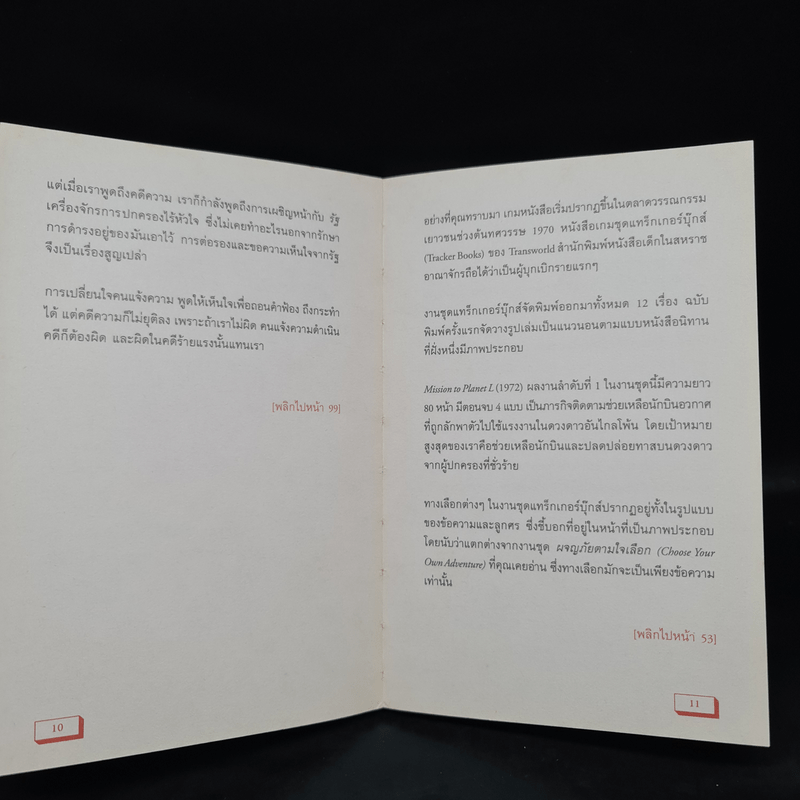 แต่เมื่อเราพูดถึงคดีความ เราก็กำลังพูดถึงการเผชิญหน้ากับ รัฐ
เครื่องจักรการปกครองไร้หัวใจ ซึ่งไม่เคยทำอะไรนอกจากรักษา
การดำรงอยู่ของมันเอาไว้ การต่อรองและขอความเห็นใจจากรัฐ
จึงเป็นเรื่องสูญเปล่า
การเปลี่ยนใจคนแจ้งความ พูดให้เห็นใจเพื่อถอนคำฟ้อง ถึงกระทำ
ได้ แต่คดีความก็ไม่ยุติลง เพราะถ้าเราไม่ผิด คนแจ้งความดำเนิน
คดีก็ต้องผิด และผิดในคดีร้ายแรงนั้นแทนเรา
[พลิกไปหน้า 99]
10
อย่างที่คุณทราบมา เกมหนังสือเริ่มปรากฏขึ้นในตลาดวรรณกรรม
เยาวชนช่วงต้นทศวรรษ 1970 หนังสือเกมชุดแทร็กเกอร์บุ๊กส์
(Tracker Books) ของ Transworld สำนักพิมพ์หนังสือเด็กในสหราช
อาณาจักรถือได้ว่าเป็นผู้บุกเบิกรายแรกๆ
งานชุดแทร็กเกอร์บุ๊กส์จัดพิมพ์ออกมาทั้งหมด 12 เรื่อง ฉบับ
พิมพ์ครั้งแรกจัดวางรูปเล่มเป็นแนวนอนตามแบบหนังสือนิทาน
ที่ฝั่งหนึ่งมีภาพประกอบ
Mission to Planet L (1972) ผลงานลำดับที่ 1 ในงานชุดนี้มีความยาว
80 หน้า มีตอนจบ 4 แบบ เป็นภารกิจติดตามช่วยเหลือนักบินอวกาศ
ที่ถูกลักพาตัวไปใช้แรงงานในดวงดาวอันไกลโพ้น โดยเป้าหมาย
สูงสุดของเราคือช่วยเหลือนักบินและปลดปล่อยทาสบนดวงดาว
จากผู้ปกครองที่ชั่วร้าย
ทางเลือกต่างๆ ในงานชุดแทร็กเกอร์บุ๊กส์ปรากฏอยู่ทั้งในรูปแบบ
ของข้อความและลูกศร ซึ่งชี้บอกที่อยู่ในหน้าที่เป็นภาพประกอบ
โดยนับว่าแตกต่างจากงานชุด ผจญภัยตามใจเลือก (Choose Your
Own Adventure) ที่คุณเคยอ่าน ซึ่งทางเลือกมักจะเป็นเพียงข้อความ
เท่านั้น
[พลิกไปหน้า 53]
11